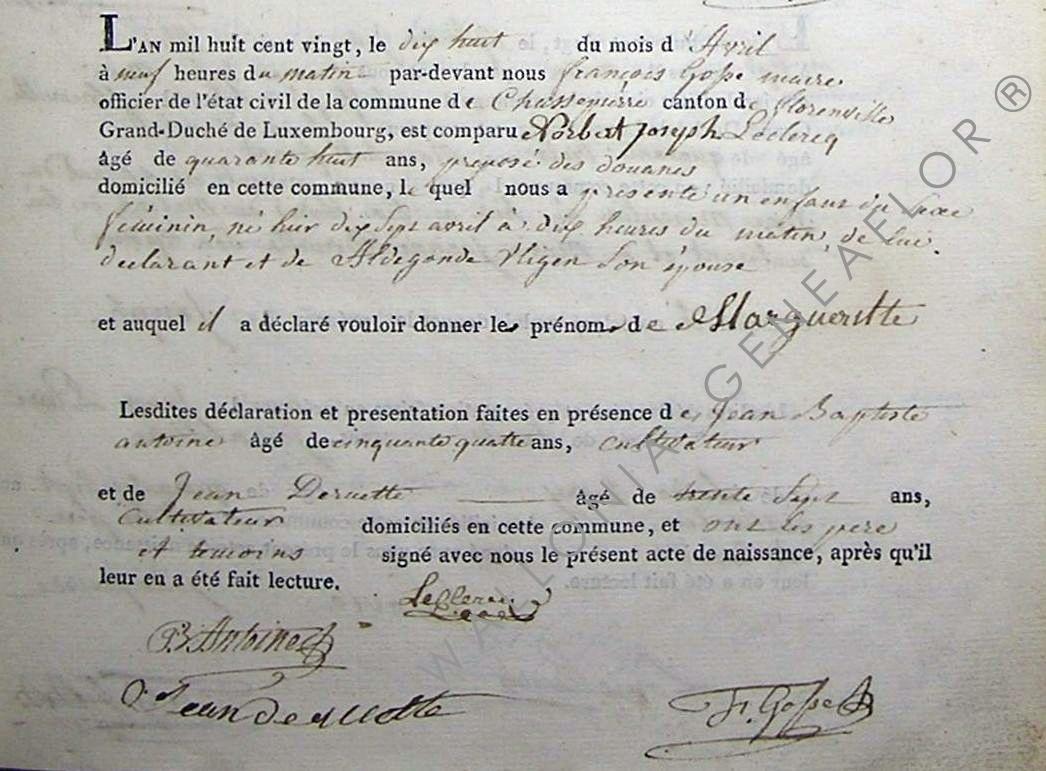 L'AN mil huit cent vingt, le dix huit du mois d'Avril
à neuf heures du matin par-devant nous françois Gosse maire
officier de l'état civil de la commune de Chassepierre canton de florenville
Grand-Duché de Luxembourg, est comparu Norbert joseph Leclercq
âgé de quarante huit ans, preposé des douanes
domicilié en cette commune, le quel nous a présenté un enfant du sexe
féminin né hier dix sept avril à dix heures du matin de lui
declarant et de Aldegonde son épouse
et auquel il a déclaré vouloir donner les prénoms de Margueritte
Lesdites déclaration et presentation faites en présence de Jean Baptiste
antoine âgé de cinquante quatre ans, cultivateur
et de Jean âgé de trente sept ans,
cultivateur domiciliés en cette commune, et ont les pere
et temoins signé avec nous le présent acte de naissance, après qu'il
leur en a été fait lecture.
Leclercq
B Antoine
Jean
F. Gosse
WALLONIA GENEAFLOR ®